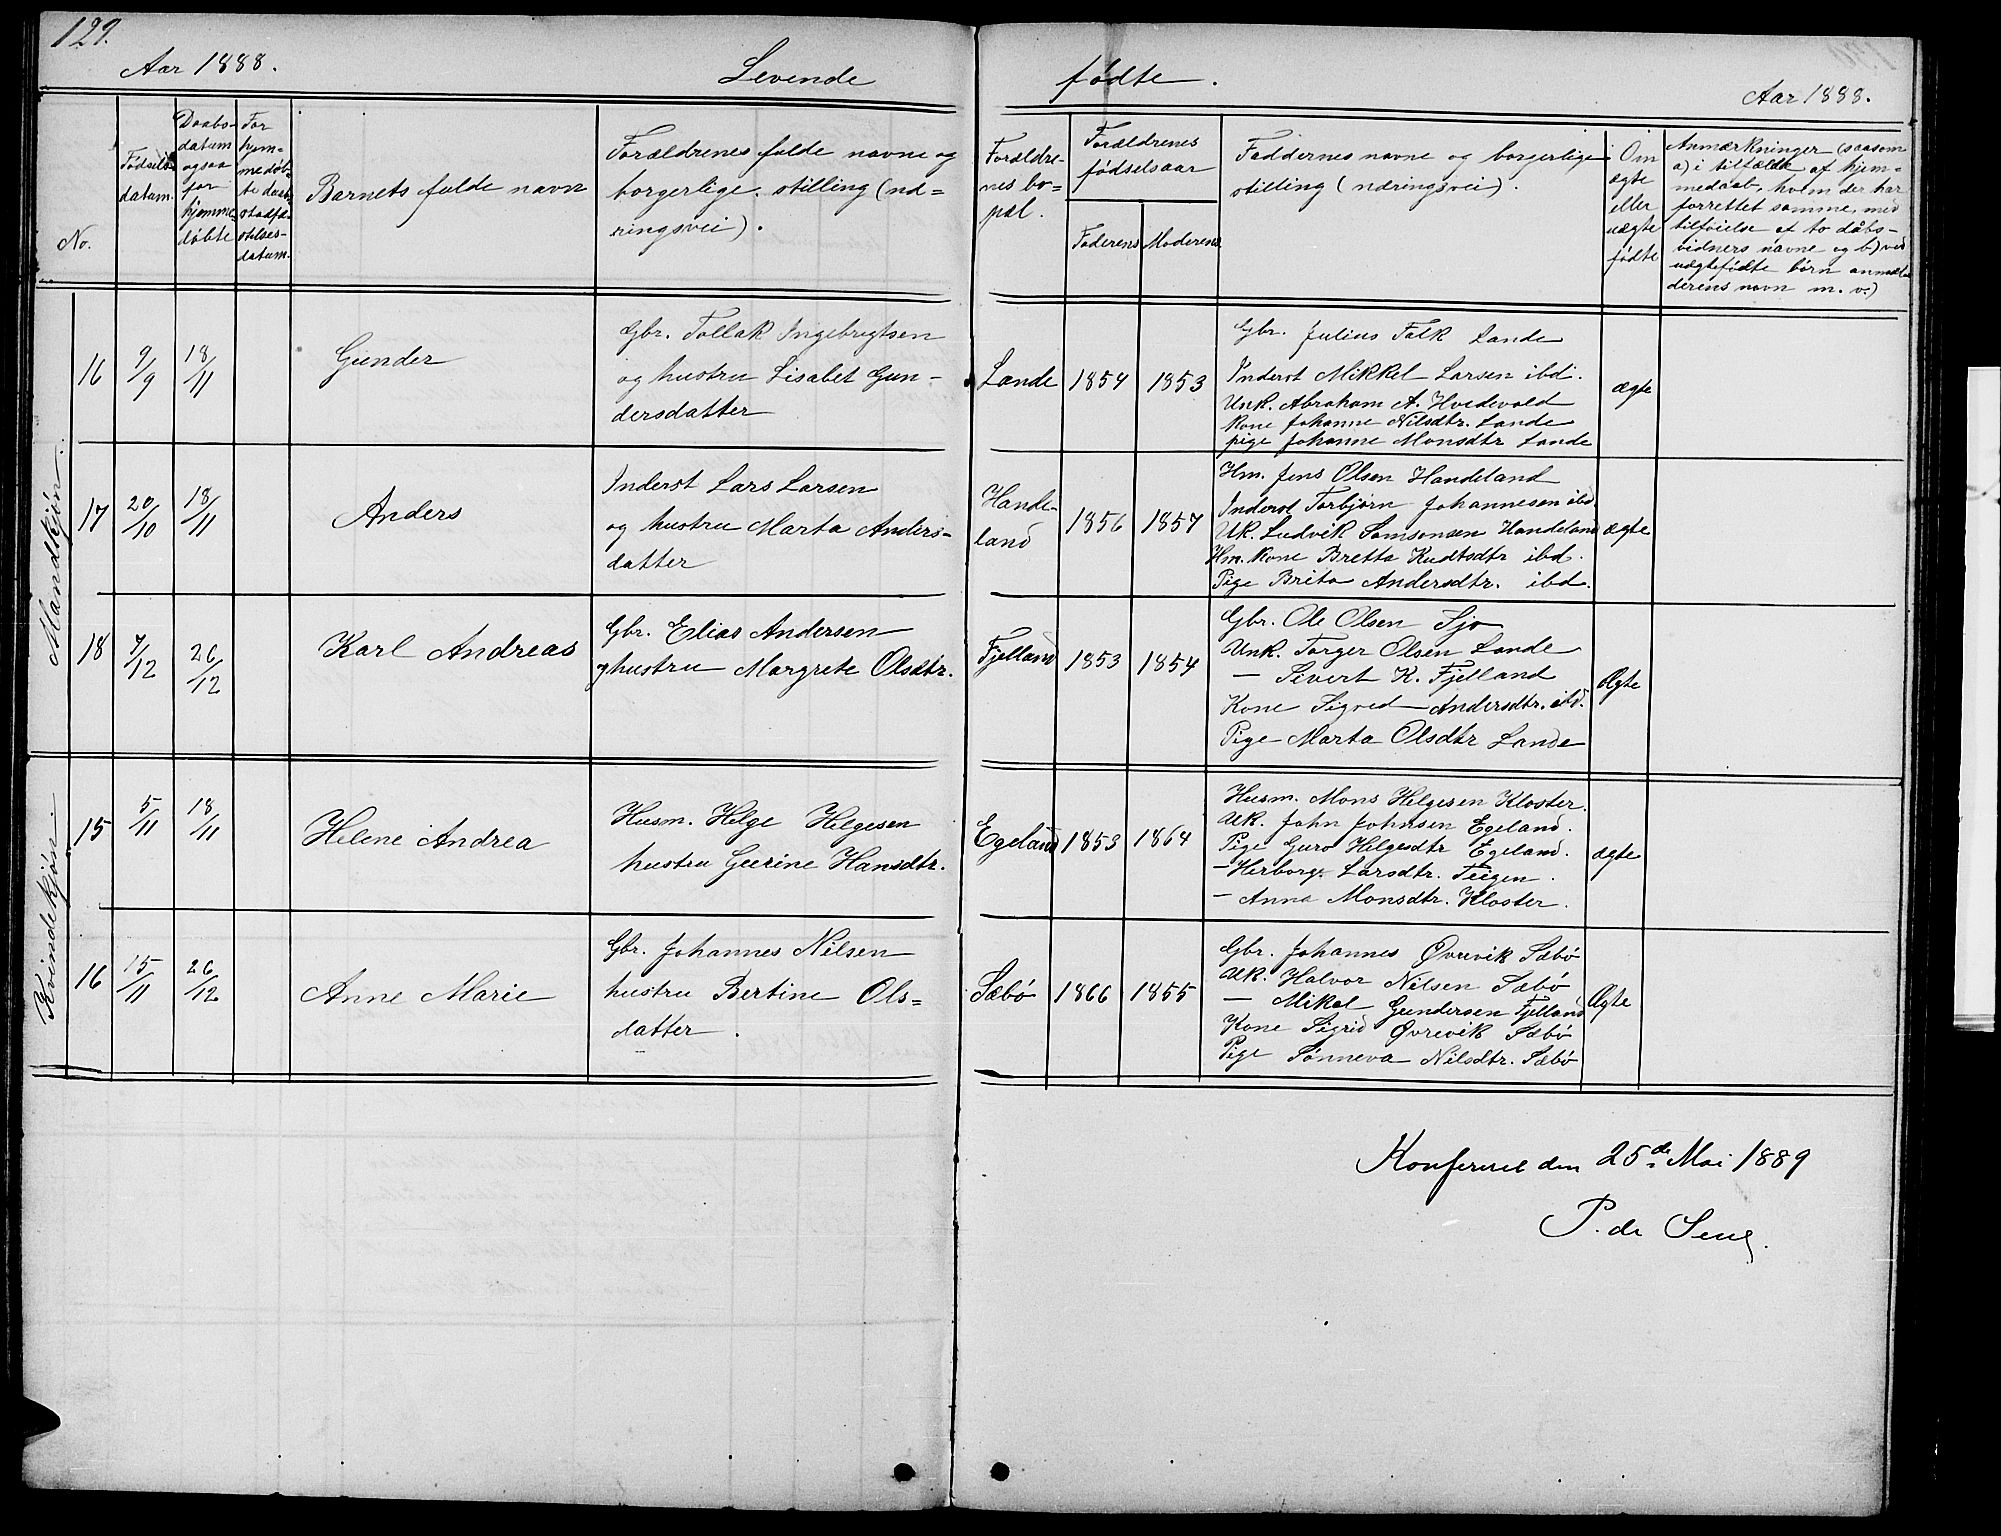 129.
Aar 1888.
Levende
fødte.
Aar 1888.
No.
Fødsels-
datum.
Daabs-
datum
ogsaa
for
hjemme-
døbte
For
hjem-
medøb-
te daabs
stadfæ-
stelses-
datum.
Barnets fulde navn
Forældrenes fulde navne og
borgerlige stilling (næ-
ringsvei).
Forældre-
nes bo-
pæl.
Forældrenes
fødselsaar
Faderens
Moderens
Faddernes navne og borgerlige
stilling (næringsvei).
Om
ægte
eller
uægte
født
Anmærkninger (saasom
a) i tilfælde af hjem-
medaab, hvem der har
forrettet samme, med
tilføielse af to dåbs-
vidners navne og b) ved
uægtefødte børn anmel-
derens navn m. v.)
Mandkjøn.
16
9/9
18/11
Gunder
Gbr. Tollak Ingebrigtsen
og hustru Lisabet Gun-
dersdatter
Lande
1854
1853
Gbr. Julius Falk Lande
Inderst Mikkel Larsen ibd.
Unk. Abraham A. Hvedevold
Kone Johanne Nilsdtr. Lande
pige Johanne Monsdtr Lande
ægte
17
20/10
18/11
Anders
Inderst Lars Larsen
og hustru Marta Anders-
datter
Hande-
land
1856
1857
Hm. Jens Olsen Handeland
Inderst Torbjørn Johannesen ibd
Uk. Ludvik Samsonsen Handeland
Hm. kone Bretta Kudtsdtr ibd.
Pige Brita Andersdtr. ibd.
ægte
18
7/12
26/12
Karl Andreas
Gbr. Elias Andersen
og hustru Margrete Olsdtr.
Fjelland
1853
1854
Gbr. Ole Olsen Sjo
Unk. Torger Olsen Lande
— Sivert K. Fjelland
Kone Sigved Andersdtr. ibd.
Pige Marta Olsdtr Lande
Ægte
Kvindekjøn.
15
5/11
18/11
Helene Andrea
Husm. Helge Helgesen
hustru Gurine Hansdtr.
Egeland
1853
1864
Husm. Mons Helgesen Kloster.
Uk. John Johnsen Egeland.
Pige Guro Helgesdtr Egeland.
— Herborg Larsdtr. Teigen.
— Anna Monsdtr. Kloster.
ægte
16
15/11
26/12
Anne Marie
Gbr. Johannes Nilsen
hustru Bertine Ols-
datter.
Sæbø
1866
1855
Gbr. Johannes Øvrevik Sæbø
Uk. Halvor Nilsen Sæbø
— Mikal Gundersen Fjelland
Kone Sigrid Øvrevik Sæbø
Pige Sønneva Nilsdtr. Sæbø
Ægte
Konfereret den 25de Mai 1889
P. de Seue.